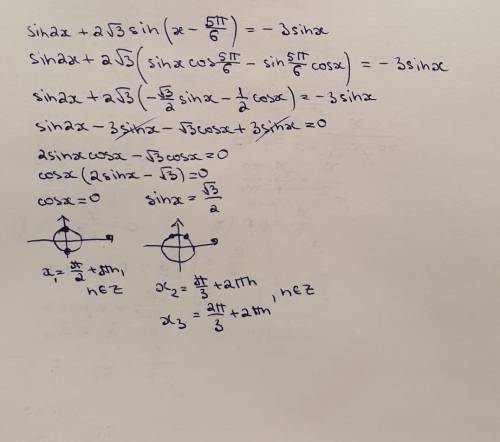 sin2x + 2√3 sin(x − 5π/6) = −3sinx
sin2x + 2√3(sinx cos 5π/6 − sin 5π/6 cosx) = −3sinx
sin2x + 2√3(−√3/2 sinx − 1/2 cosx) = −3sinx
sin2x − 3sinx − √3cosx + 3sinx = 0
2sinxcosx − √3cosx = 0
cosx(2sinx − √3) = 0
cosx = 0 sinx = √3/2
x₁ = π/2 + πn,
n∈Z
x₂ = π/3 + 2πn
, n∈Z
x₃ = 2π/3 + 2πn